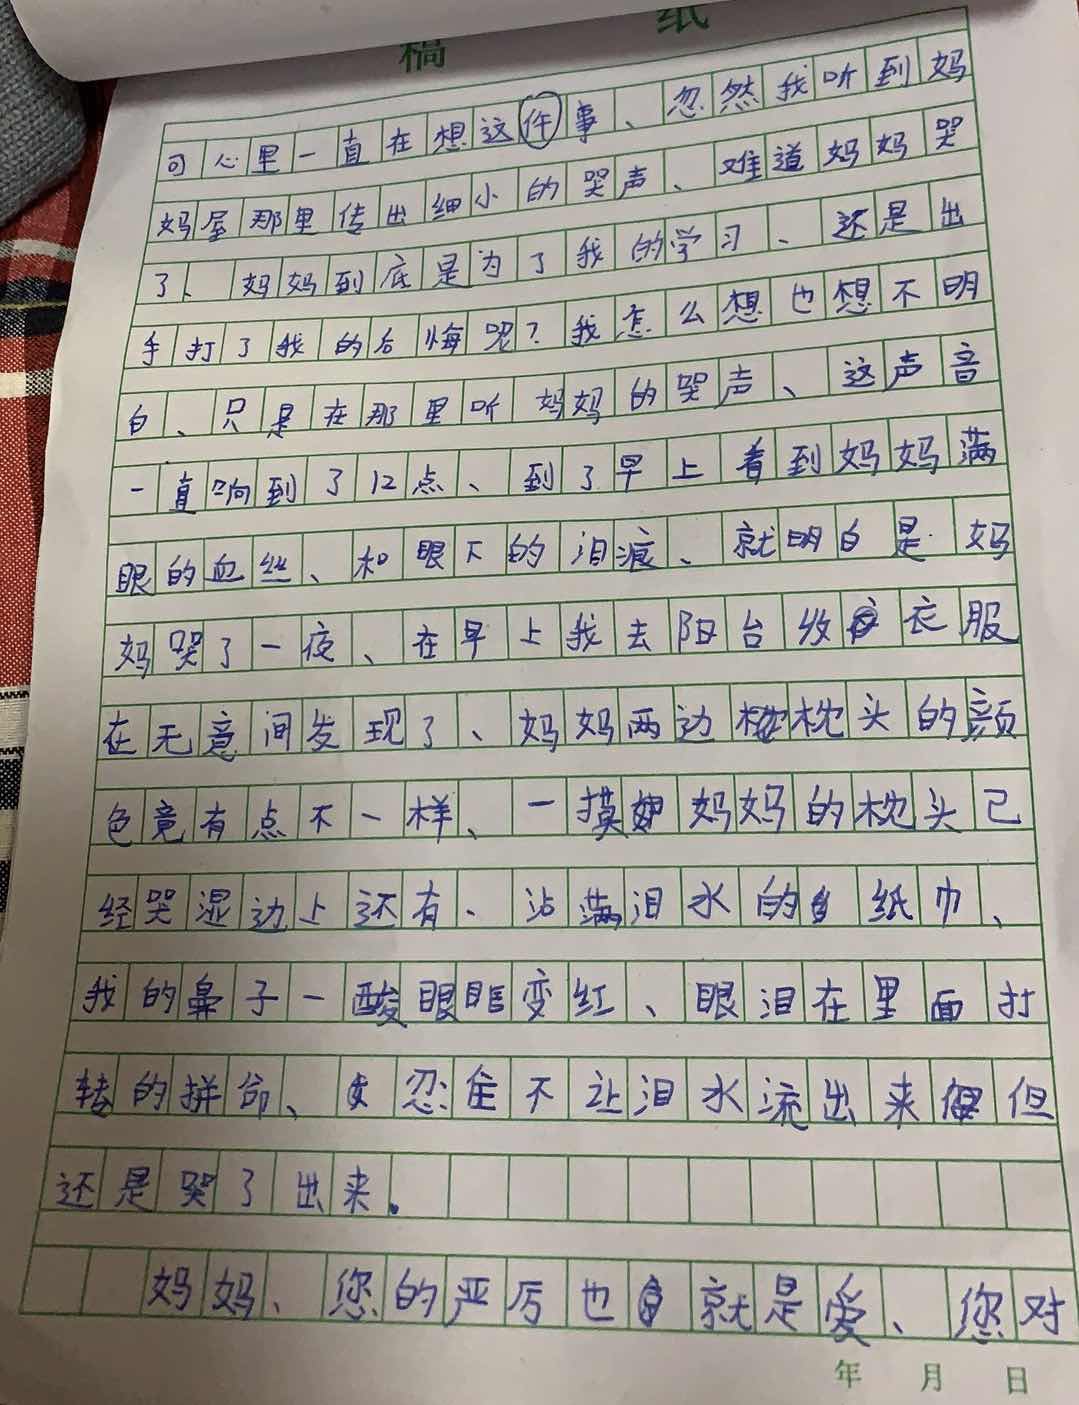 稿 纸
可心里一直在想这件事、忽然我听到妈
妈屋那里传出细小的哭声、难道妈妈哭
了、妈妈到底是为了我的学习、还是出
手打了我的后悔呢？我怎么想也想不明
白、只是在那里听妈妈的哭声、这声音
一直响到了12点、到了早上看到妈妈满
眼的血丝、和眼下的泪痕、就明白是妈
妈哭了一夜、在早上我去阳台收衣服
在无意间发现了、妈妈两边枕头的颜
色竟有点不一样、一摸妈妈的枕头已
经哭湿边上还有、沾满泪水的纸巾、
我的鼻子一酸眼眶变红、眼泪在里面打
转的拼命、忍住不让泪水流出来但
还是哭了出来。
妈妈、您的严厉也就是爱、您对
年 月 日